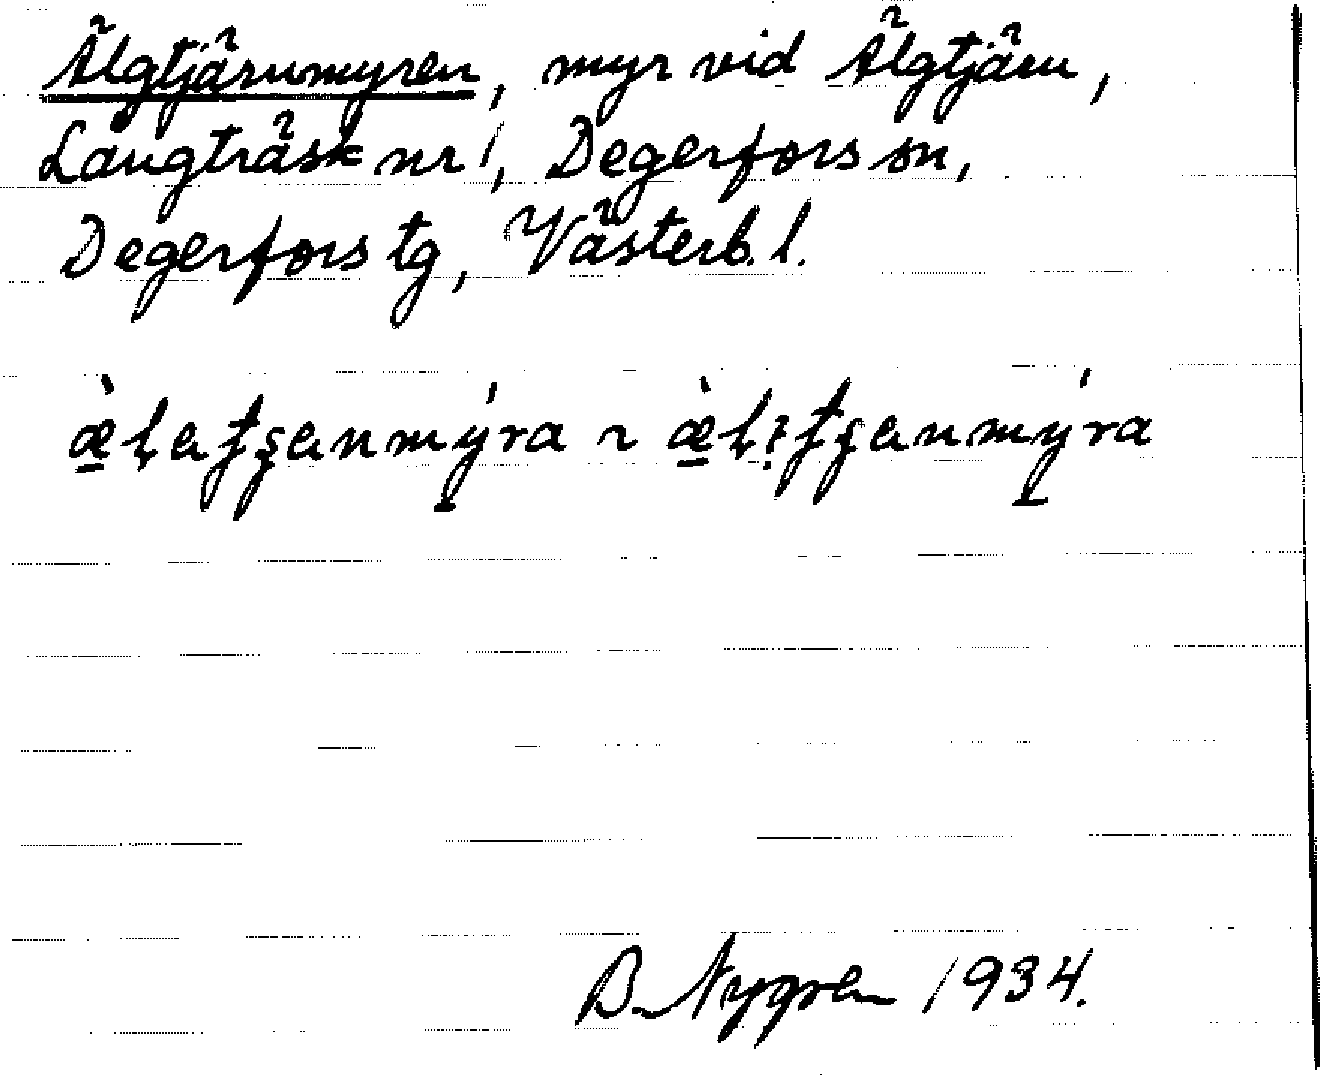 Älgtjärnmyren, myr vid Älgtjärn,
Långträsk nr 1, Degerfors sn,
Degerfors tg, Västerb. l.
B. Nygren 1934.